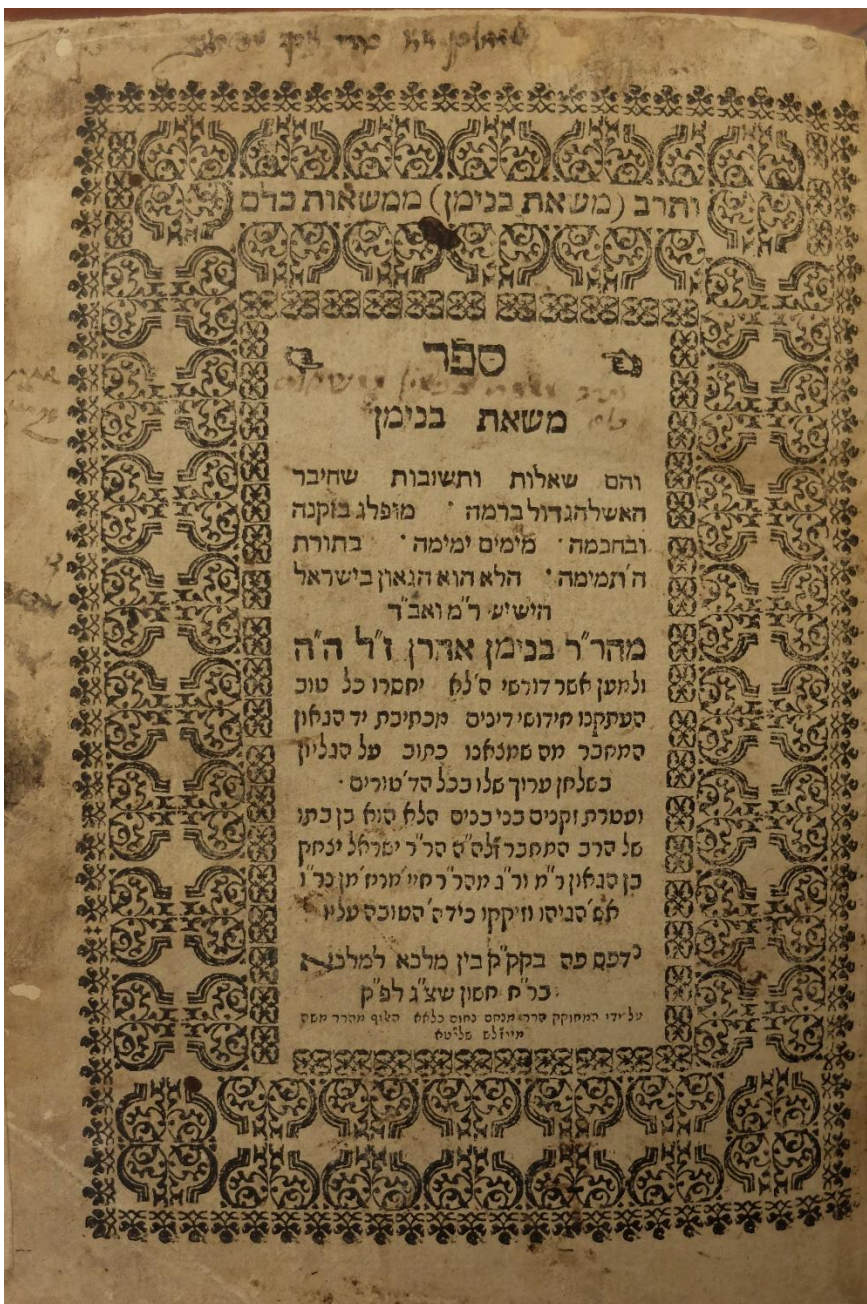 ותרב (משאת בנימן) ממשאות כלם
ספר
משאת בנימן
והם שאלות ותשובות שחיבר
האשל הגדול ברמה · מופלג בזקנה
ובחכמה · מימים ימימה · בתורת
ה' תמימה · הלא הוא הגאון בישראל
הישיש ר"מ ואב"ד
מהר"ר בנימן אהרן ז"ל ה"ה
ולמען אשר דורשי ה' לא יחסרו כל טוב
העתקנו חידושי דינים מכתיבת יד הגאון
המחבר מה שמצאנו כתוב על הגליון
בשלחן ערוך שלו בכל הד' טורים ·
ועטרת זקנים בני בנים הלא הוא בן בתו
של הרב המחבר זלה"ה הר"ר ישראל יצחק
בן הגאון ר"מ ור"ג מהר"ר חיי'
הגיהו וזיקקו כידה' הטובה עליו
נדפס פה בקק"ק בין מלכא למלכא
בר"ח חשון שצ"ג לפ"ק
על ידי המחוקק הר"ר מנחם נחום בלאא האלוף מהרר משה
מייזלש שליטא